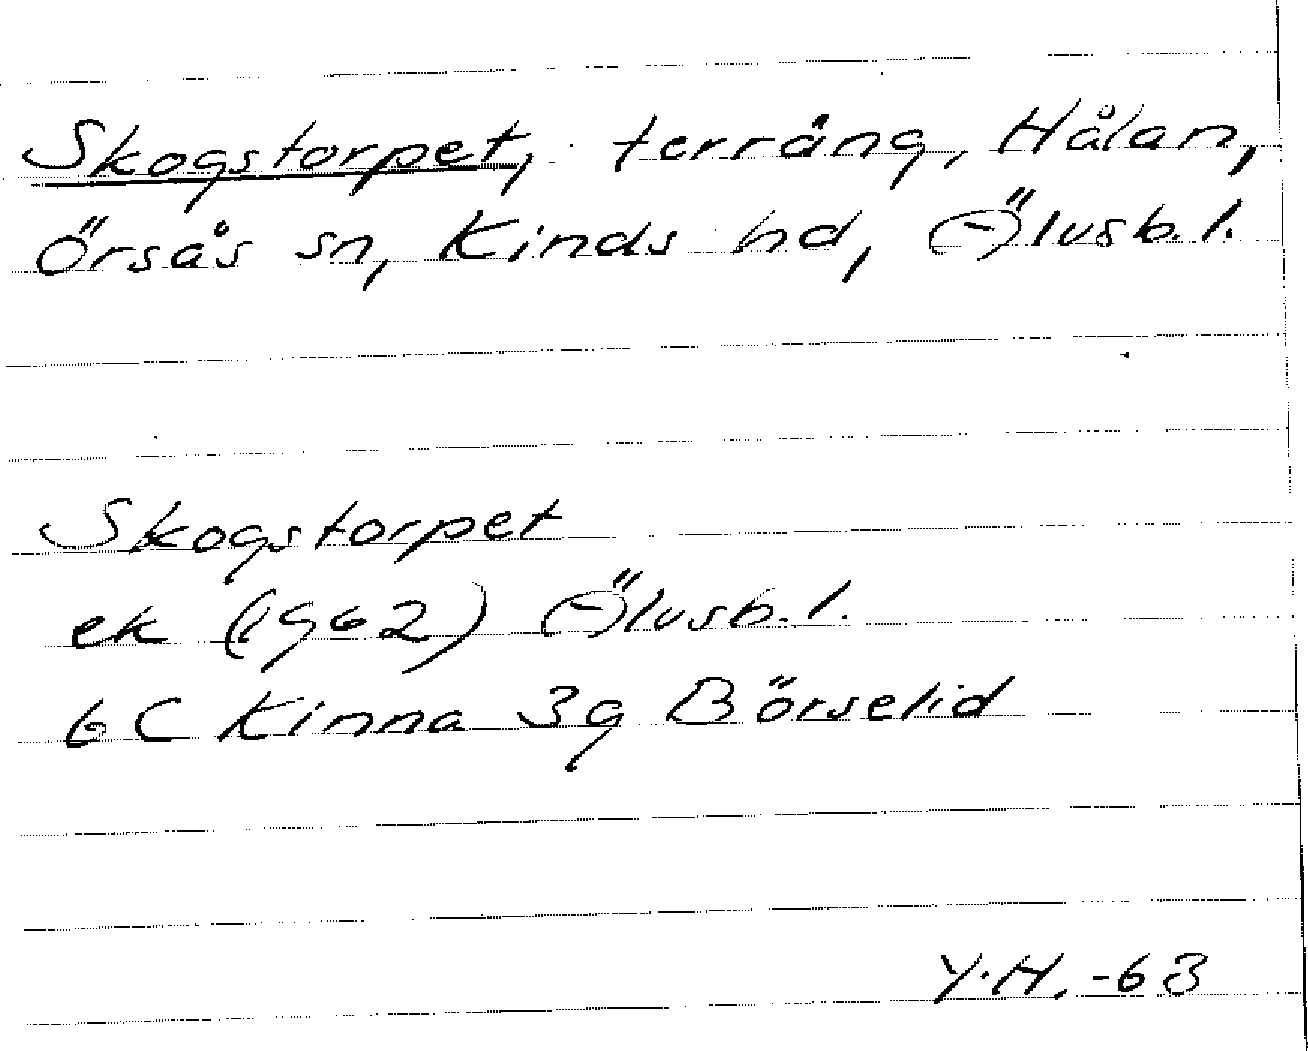 Skogstorpet, terräng, Hålan,
Örsås sn, Kinds hd, Älvsb. l.
Skogstorpet
ek (1962) Älvsb. l.
6C Kinna 3g Börselid
Y.H. -63